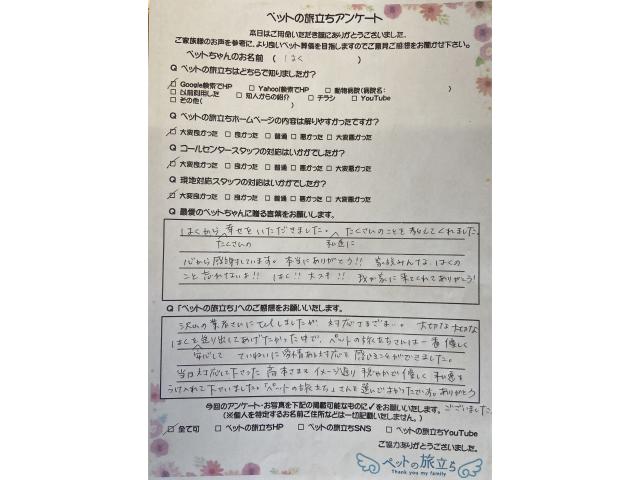 ペットの旅立ちアンケート
本日はご用命いただき誠にありがとうございました。
ご家族様のお声を参考に、より良いペット葬儀を目指しますのでご意見ご感想をお聞かせ下さい。
ペットちゃんのお名前 ( はく )
Q ペットの旅立ちはどちらで知りましたか?
☑ Google検索でHP □ Yahoo!検索でHP □ 動物病院(病院名: )
□ 以前利用した □ 知人からの紹介 □ チラシ □ YouTube
□ その他( )
Q ペットの旅立ちホームページの内容は解りやすかったですか?
☑ 大変良かった □ 良かった □ 普通 □ 悪かった □ 大変悪かった
Q コールセンタースタッフの対応はいかがでしたか?
☑ 大変良かった □ 良かった □ 普通 □ 悪かった □ 大変悪かった
Q 現地対応スタッフの対応はいかがでしたか?
☑ 大変良かった □ 良かった □ 普通 □ 悪かった □ 大変悪かった
Q 最愛のペットちゃんに贈る言葉をお願いします。
はくから 幸せをいただきました。 たくさんのことを教えてくれました。
たくさんの 私達に
心から感謝しています。本当にありがとう!! 家族みんな、はくの
こと忘れないよ!! はく!! 大スキ!! 我が家に来てくれてありがとう!
Q 「ペットの旅立ち」へのご感想をお願いいたします。
沢山の業者さんにTELしましたが 対応でまちまい。 大切な大切な
はくを送り出してあげたかった中で、ペットの旅立ちさんは一番 優しく
安心して ていねいに 愛情ある対応を感じることができました。
当日対応して下さった 高本さまも イメージ通り 穏やかで優しく 私達を
うけ入れて下さいました。「ペットの旅立ち」さんを選んでよかったです。ありがとう
ございました。
今回のアンケート・お写真を下記の掲載可能なものに✓をお願いします。
(※個人を特定するお名前ご住所などは一切記載いたしません。)
☑ 全て可 □ ペットの旅立ちHP □ ペットの旅立ちSNS □ ペットの旅立ちYouTube
ご協力ありがとうございました。
ペットの旅立ち
Thank you my family